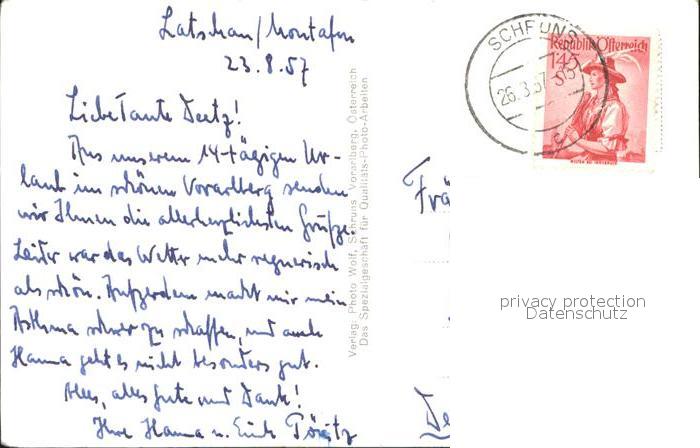 Latschau/Montafon
23.8.57
Liebe Tante Deetz!
Aus unserem 14-tägigen Ur-
laub im schönen Vorarlberg senden
wir Ihnen die allerherzlichsten Grüße.
Leider war das Wetter mehr regnerisch
als schön. Außerdem macht mir mein
Asthma schwer zu schaffen, und auch
Hanna geht es nicht besonders gut.
Alles, alles Gute und Dank!
Ihre Hanna u. Erich
Verlag: Photo Wolf, Schruns Vorarlberg, Österreich
Das Spezialgeschäft für Qualitäts-Photo-Arbeiten
SCHRUNS
Republik Österreich
1'45
Frä
privacy protection
Datenschutz
De